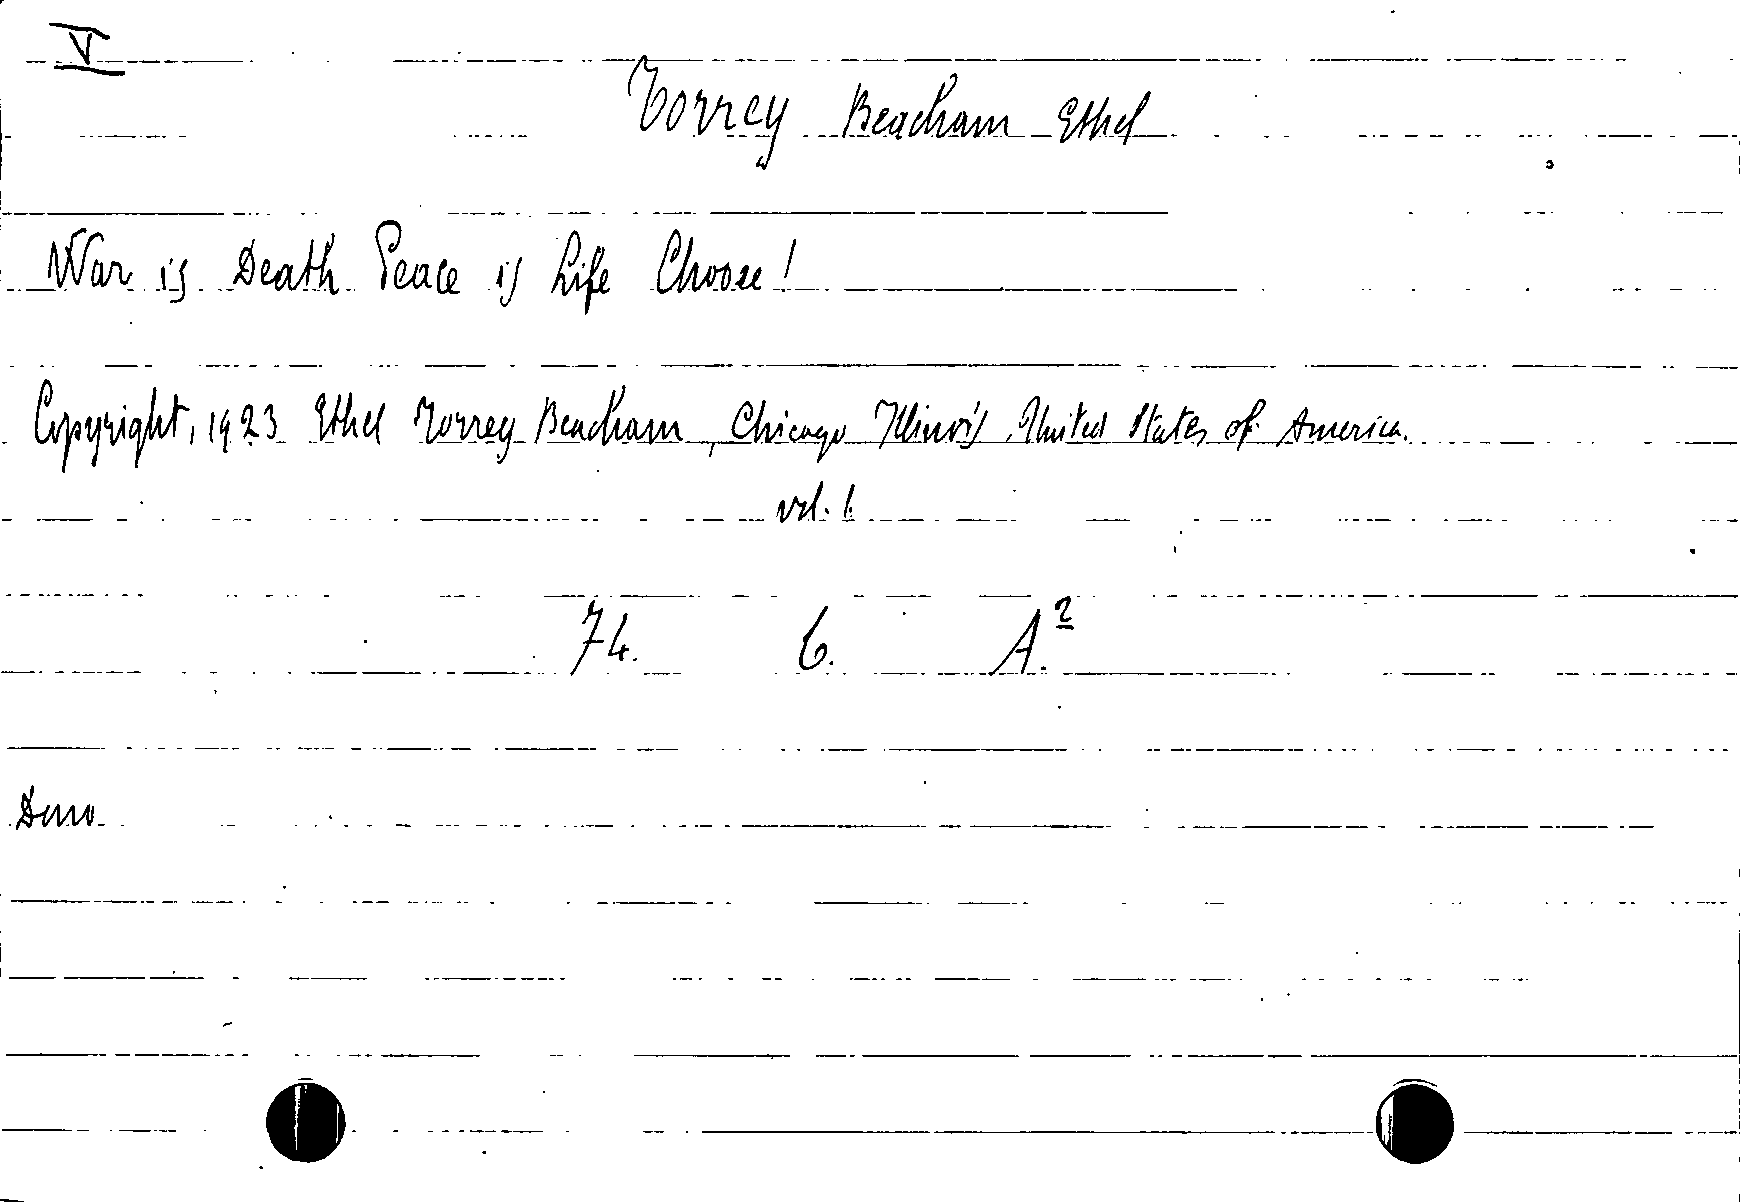 V
Torrey Beacham Ethel
War is Death Peace is Life Choose!
Copyright, 1923 Ethel Torrey Beacham, Chicago Illinois, United States of America.
vol. 1.
74. 6. A.²
Dono